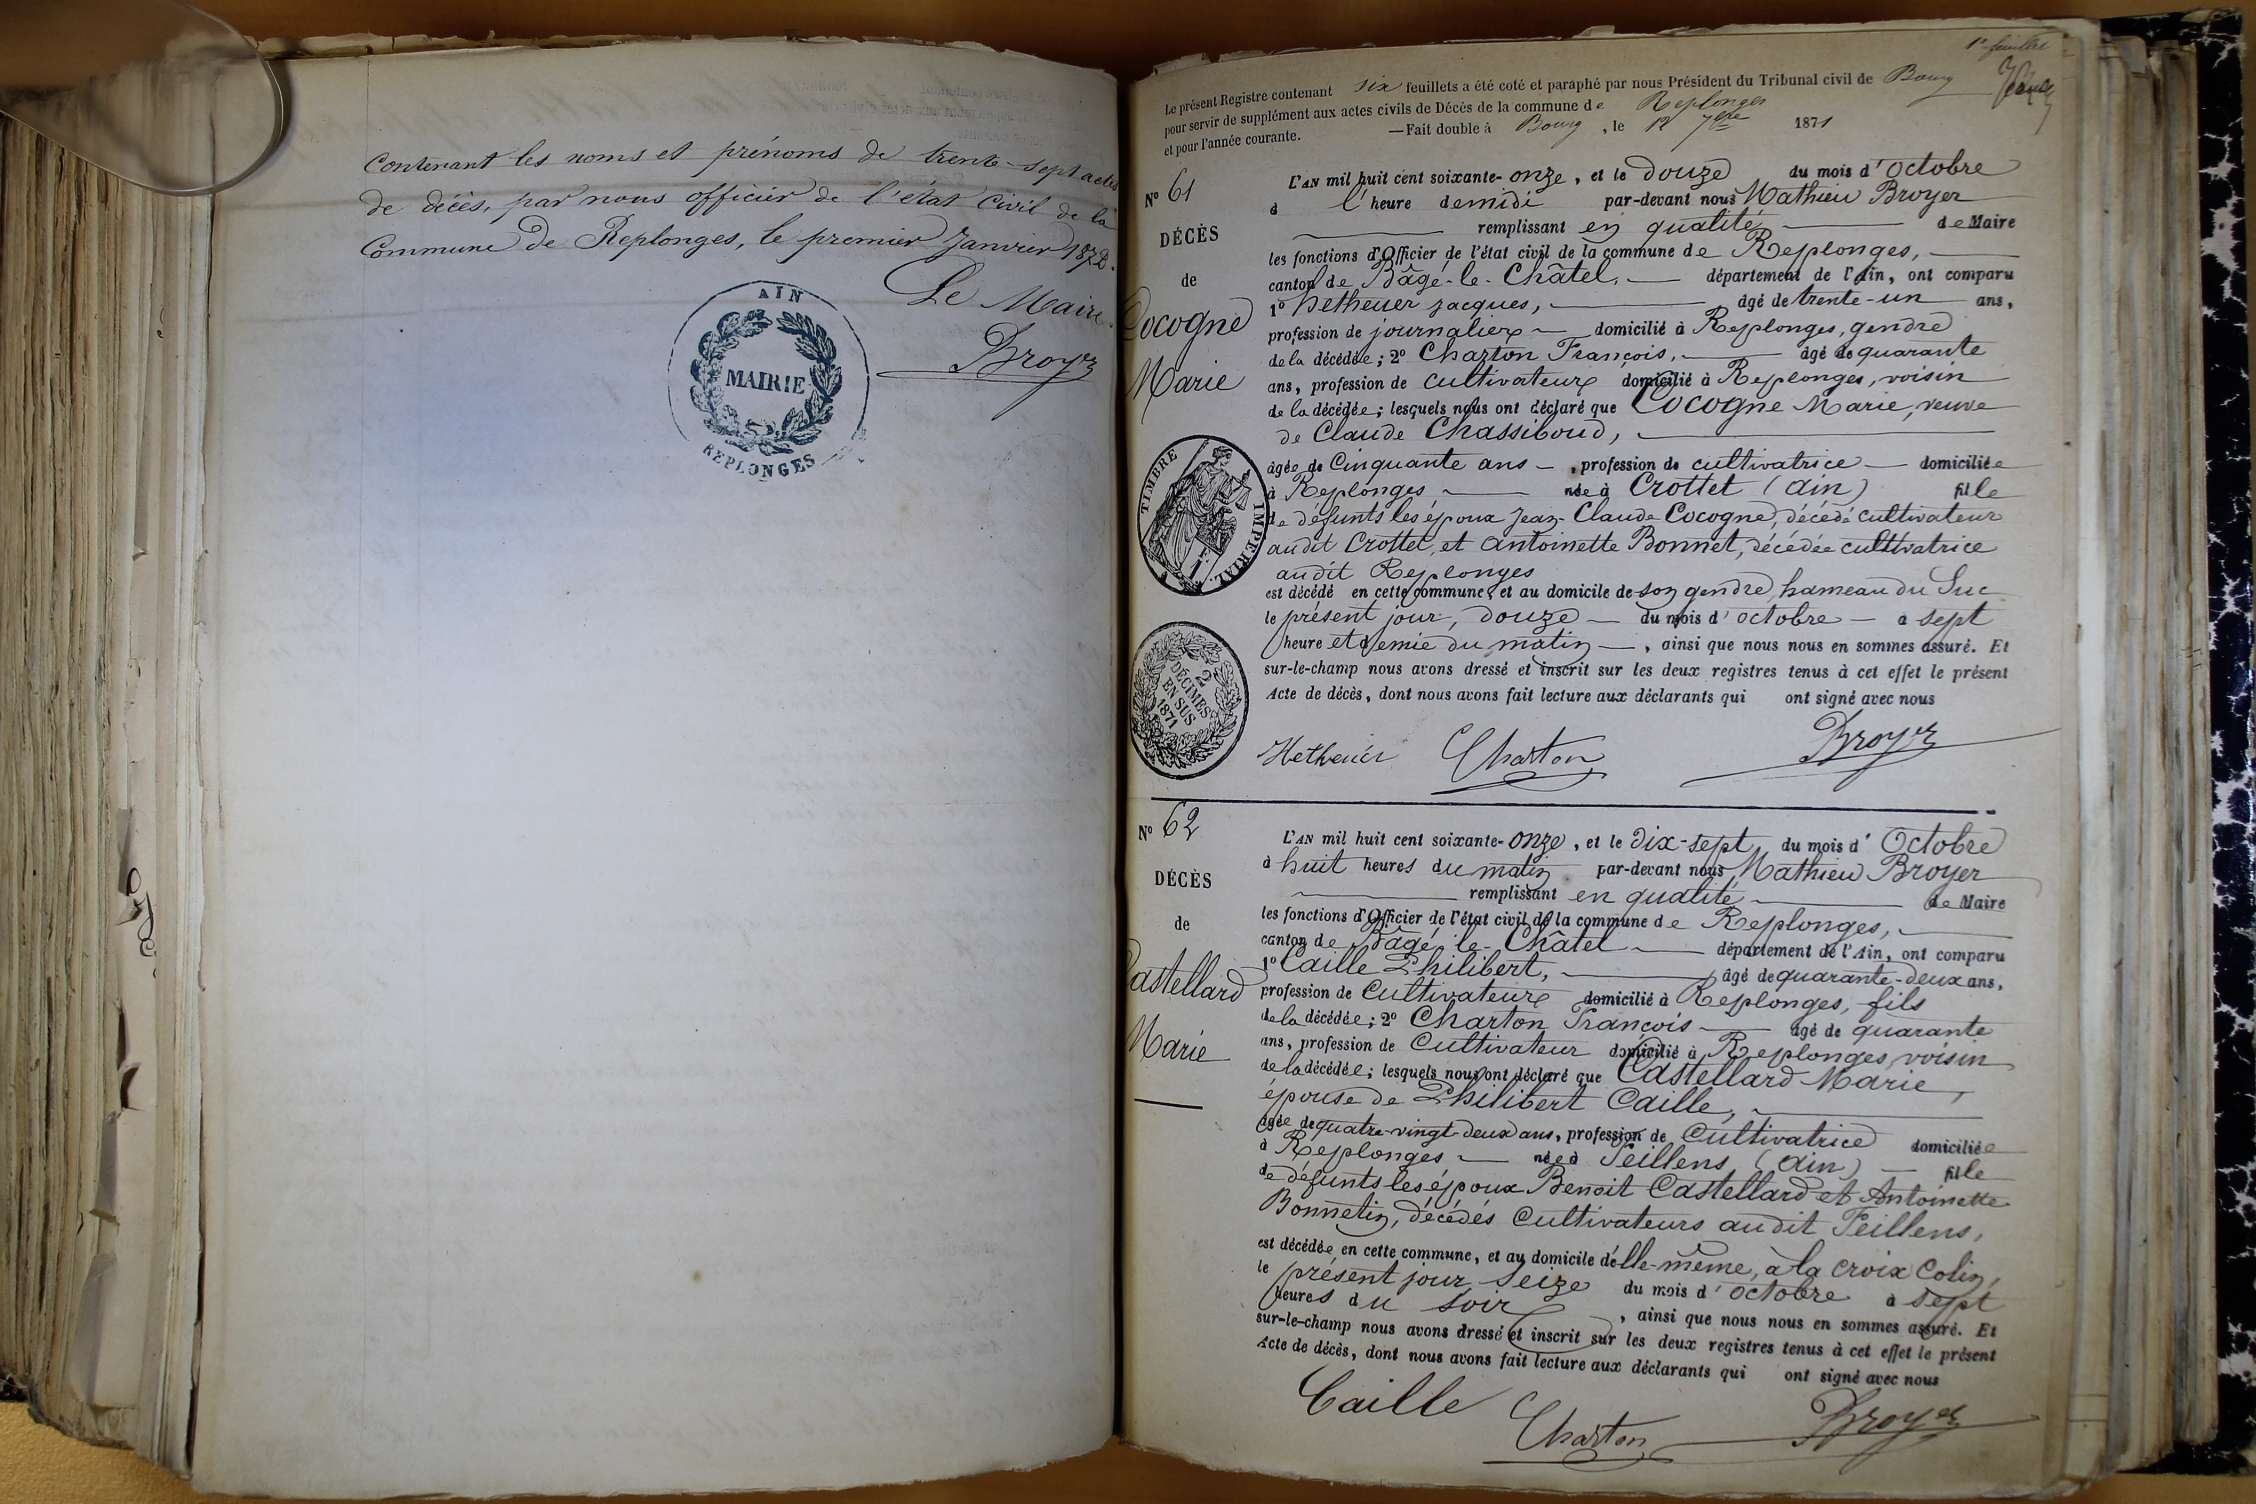 Contenant les noms et prénoms de trente-sept actes
de décès, par nous officier de l'état civil de la
Commune de Replonges, le premier Janvier 1872.
Le Maire.
Broyer
AIN
MAIRIE
REPLONGES
1er feuillet
Le présent Registre contenant six feuillets a été coté et paraphé par nous Président du Tribunal civil de Bourg
pour servir de supplément aux actes civils de Décès de la commune de Replonges
et pour l'année courante. —Fait double à Bourg, le 12 7bre 1871
No 61
DÉCÈS
de
Cocogne
Marie
TIMBRE IMPERIAL
2
DÉCIMES
EN SUS
1871
L'AN mil huit cent soixante-onze, et le douze du mois d'Octobre
à l'heure de midi par-devant nous Mathieu Broyer
remplissant en qualité de Maire
les fonctions d'Officier de l'état civil de la commune de Replonges,
canton de Bâgé-le-Châtel, département de l'Ain, ont comparu
1o hetheuer jacques, âgé de trente-un ans,
profession de journalier domicilié à Replonges, gendre
de la décédée; 2o Charton François, âgé de quarante
ans, profession de cultivateur domicilié à Replonges, voisin
de la décédée; lesquels nous ont déclaré que Cocogne Marie, veuve
de Claude Chassiboud,
âgée de Cinquante ans, profession de cultivatrice domiciliée
à Replonges née à Crottet (Ain) fille
de défunts les époux Jean-Claude Cocogne, décédé cultivateur
audit Crottet, et Antoinette Bonnet, décédée cultivatrice
audit Replonges
est décédé en cette commune, et au domicile de son gendre, hameau du Suc
le présent jour, douze du mois d'octobre à sept
heure et demie du matin, ainsi que nous nous en sommes assuré. Et
sur-le-champ nous avons dressé et inscrit sur les deux registres tenus à cet effet le présent
Acte de décès, dont nous avons fait lecture aux déclarants qui ont signé avec nous
Hetheuer Charton Broyer
No 62
DÉCÈS
de
Castellard
Marie
L'AN mil huit cent soixante-onze, et le dix-sept du mois d'Octobre
à huit heures du matin par-devant nous Mathieu Broyer
remplissant en qualité de Maire
les fonctions d'Officier de l'état civil de la commune de Replonges,
canton de Bâgé-le-Châtel département de l'Ain, ont comparu
1o Caille Philibert, âgé de quarante-deux ans,
profession de Cultivateur domicilié à Replonges, fils
de la décédée; 2o Charton François âgé de quarante
ans, profession de Cultivateur domicilié à Replonges, voisin
de la décédée; lesquels nous ont déclaré que Castellard Marie,
épouse de Philibert Caille,
âgée de quatre-vingt-deux ans, profession de Cultivatrice domiciliée
à Replonges née à Feillens (Ain) fille
de défunts les époux Benoit Castellard et Antoinette
Bonnetin, décédés Cultivateurs audit Feillens,
est décédée en cette commune, et au domicile d'elle-même, à la croix Colin,
le présent jour Seize du mois d'octobre à sept
heures du soir, ainsi que nous nous en sommes assuré. Et
sur-le-champ nous avons dressé et inscrit sur les deux registres tenus à cet effet le présent
Acte de décès, dont nous avons fait lecture aux déclarants qui ont signé avec nous
Caille Charton Broyer